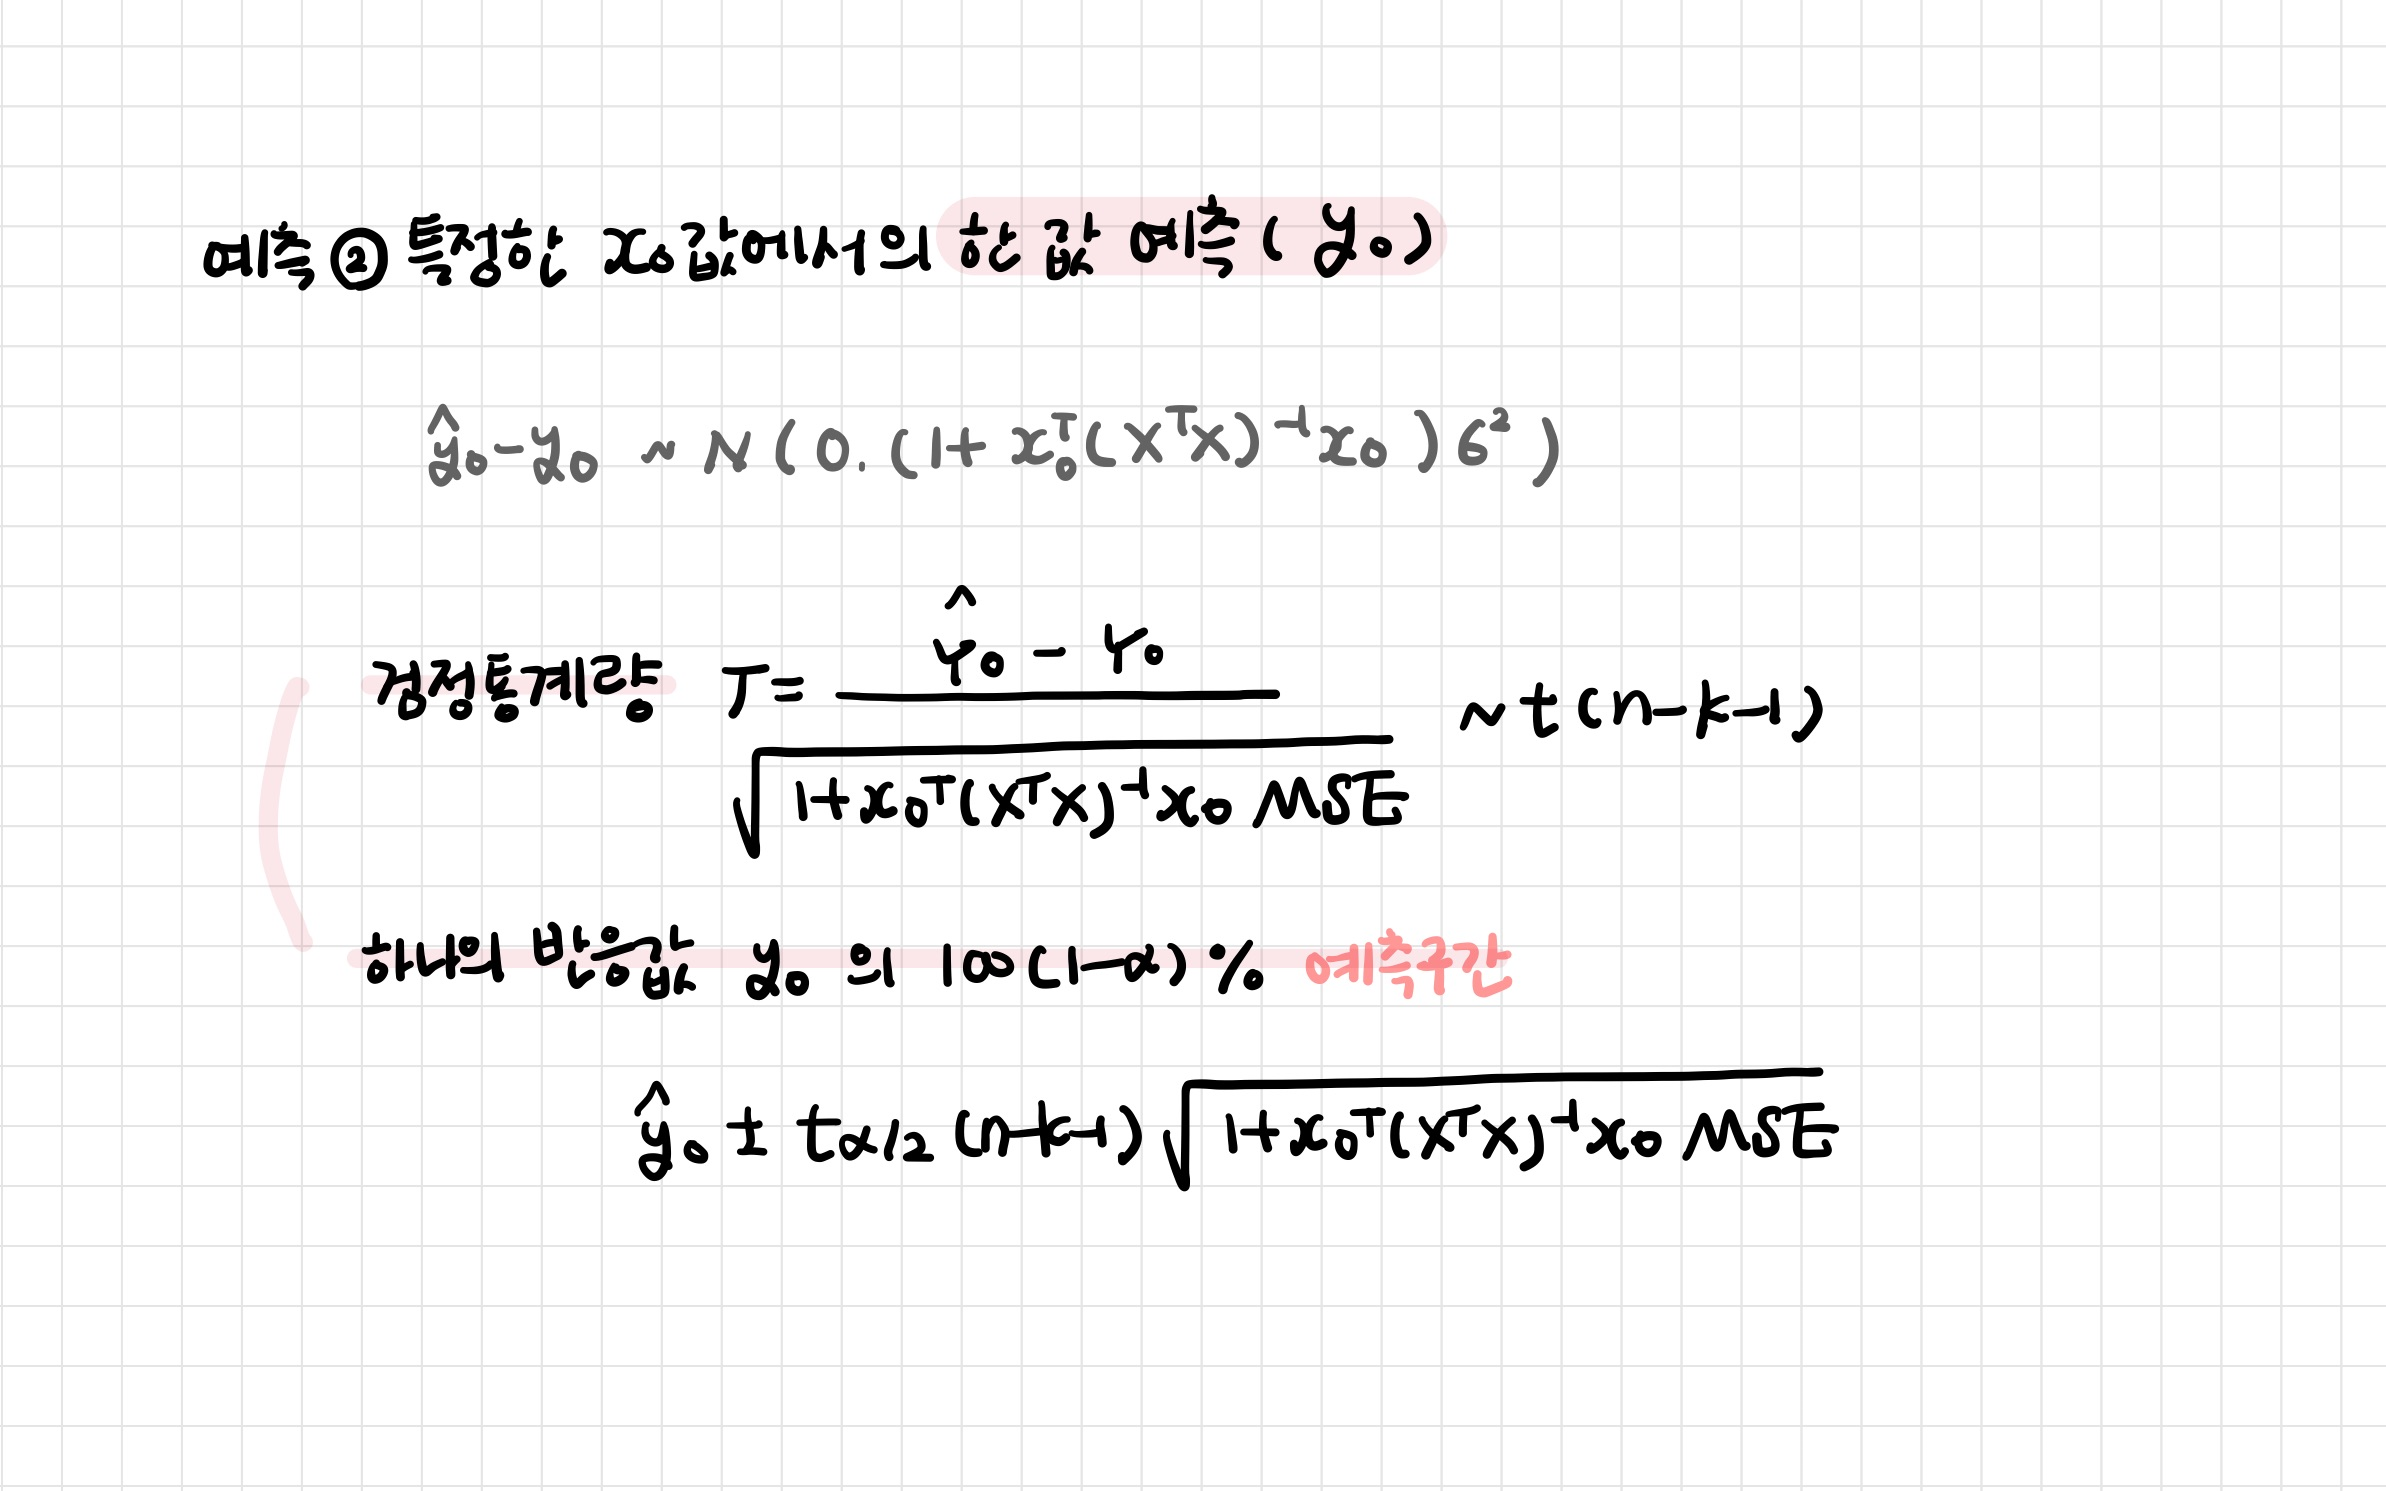 예측 ② 특정한 x₀값에서의 한 값 예측 ( y₀ )
ŷ₀ - y₀ ~ N ( 0. ( 1 + x₀ᵀ (XᵀX)⁻¹ x₀ ) σ² )
검정통계량 T = (Ŷ₀ - Y₀) / √(1 + x₀ᵀ(XᵀX)⁻¹x₀ MSE) ~ t (n-k-1)
하나의 반응값 y₀ 의 100(1-α) % 예측구간
ŷ₀ ± t α/2 (n-k-1) √(1 + x₀ᵀ(XᵀX)⁻¹x₀ MSE)